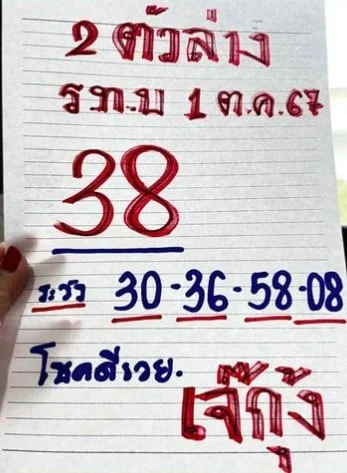 2 ตัวล่าง
ร.ท.บ 1 ต.ค.67
38
ระวัง 30-36-58-08
โชคดีรวย.
เจ๊กุ้ง